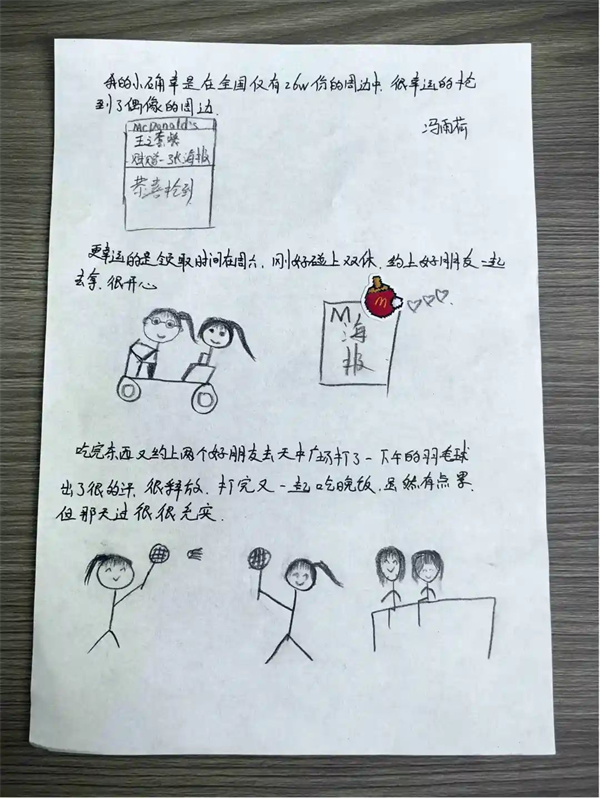 我的小确幸是在全国仅有26w份的周边中,很幸运的抢
到了偶像的周边.
冯雨荷
McDonald's
赠一张海报
恭喜抢到
更幸运的是领取时间在周六,刚好碰上双休,约上好朋友一起
去拿.很开心
M
海
报
M
吃完东西又约上两个好朋友去天中广场打了一下午的羽毛球
出了很的汗,很释放.打完又一起吃晚饭,虽然有点累.
但那天过很很充实.